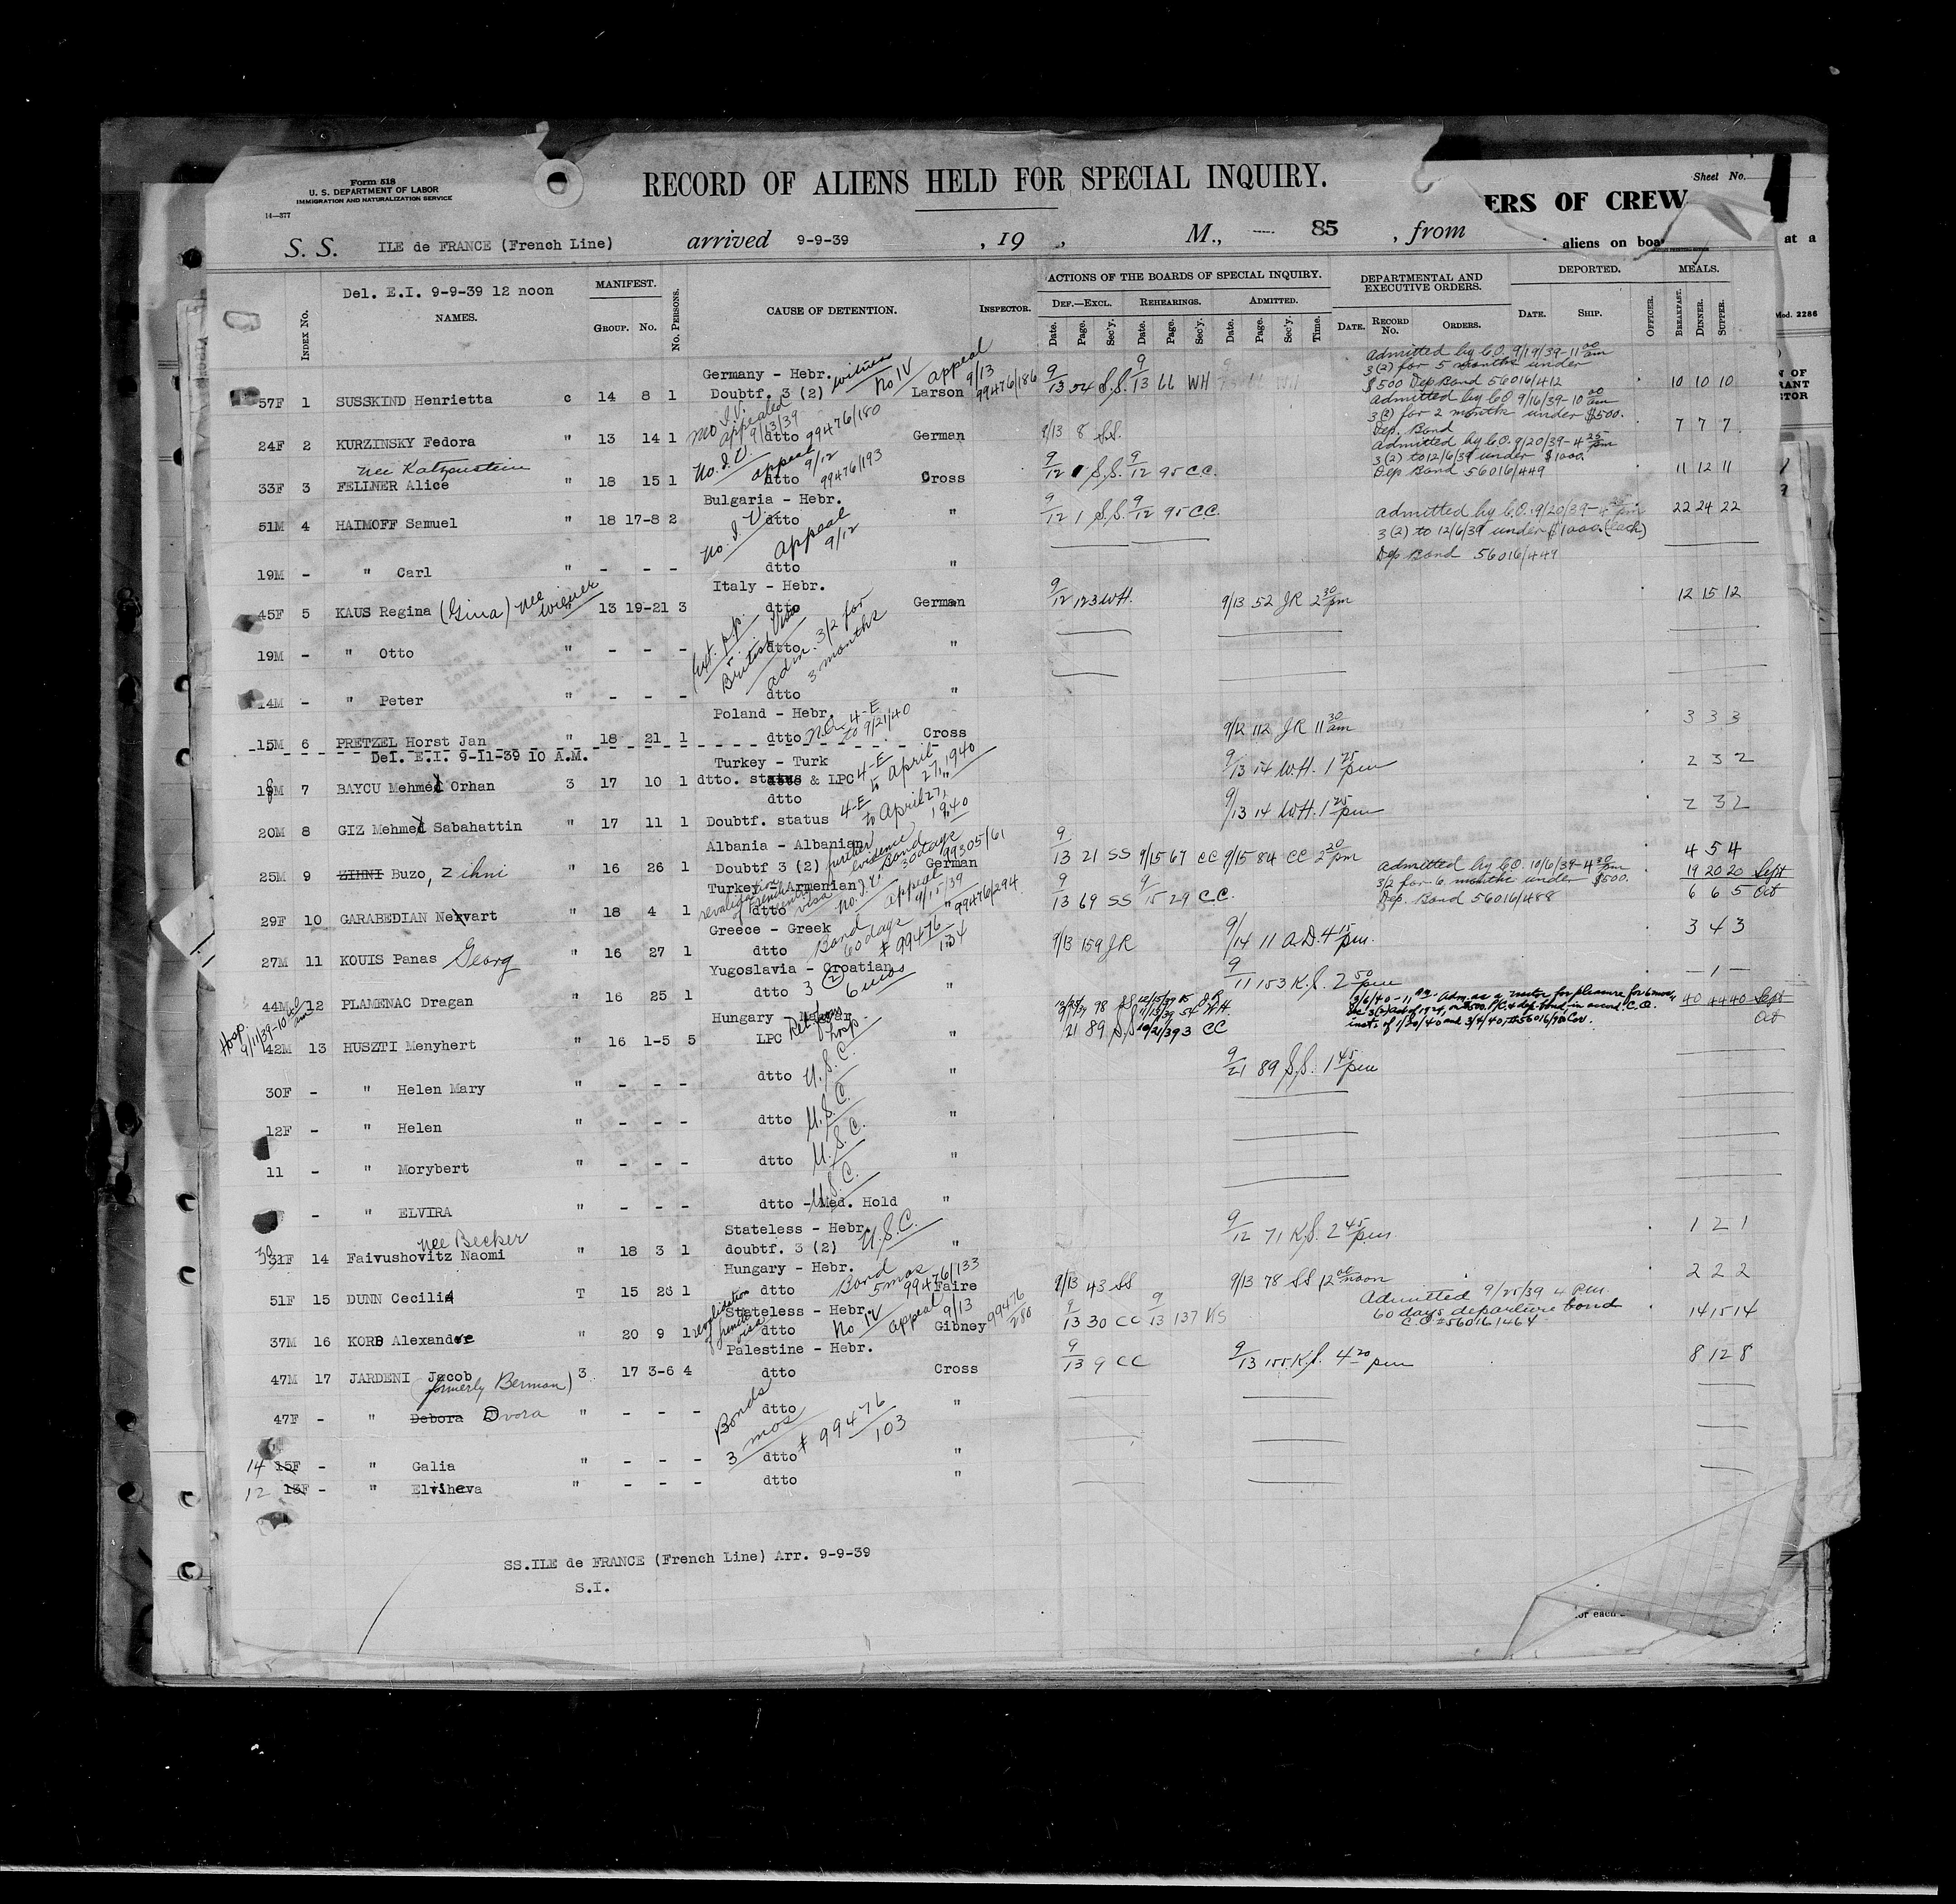 Form 518
U. S. DEPARTMENT OF LABOR
IMMIGRATION AND NATURALIZATION SERVICE
14—377
RECORD OF ALIENS HELD FOR SPECIAL INQUIRY.
Sheet No.
ERS OF CREW
S. S. ILE de FRANCE (French Line) arrived 9-9-39 , 19 , M., — 85 , from
aliens on boa
at a
Del. E.I. 9-9-39 12 noon
INDEX NO. NAMES. MANIFEST. GROUP. NO. NO. PERSONS. CAUSE OF DETENTION. INSPECTOR.
ACTIONS OF THE BOARDS OF SPECIAL INQUIRY.
DEF.—EXCL. REHEARINGS. ADMITTED.
Date. Page. Sec'y. Date. Page. Sec'y. Date. Page. Sec'y. Time.
DEPARTMENTAL AND EXECUTIVE ORDERS.
DATE. RECORD NO. ORDERS.
DEPORTED.
DATE. SHIP. OFFICER.
MEALS.
BREAKFAST. DINNER. SUPPER.
Mod. 2286
Germany - Hebr.
57F 1 SUSSKIND Henrietta c 14 8 1 Doubtf. 3 (2) witness No IV appeal 9/13 Larson 99476/186 9/13 54 S.S. 9/13 66 WH 10 10 10
Admitted by C.O. 9/19/39-11 00 am
3(2) for 5 months under
$500 Dep Bond 56016/412
24F 2 KURZINSKY Fedora " 13 14 1 dtto No I.V. appealed 9/13/39 99476/180 German 9/13 8 S.S. 7 7 7
Admitted by CO 9/16/39-10 00 am
3(2) for 2 months under $500.
Dep. Bond
nee Katzenstein
33F 3 FELLNER Alice " 18 15 1 dtto No. I.V. appeal 9/12 99476/193 Cross 9/12 1 S.S. 9/12 95 C.C. 11 12 11
admitted by C.O. 9/20/39-4 25 pm
3(2) to 12/6/39 under $1000.
Dep Bond 56016/449
Bulgaria - Hebr.
51M 4 HAIMOFF Samuel " 18 17-8 2 dtto No. I.V. appeal 9/12 " 9/12 1 S.S. 9/12 95 C.C. 22 24 22
admitted by C.O. 9/20/39-4
3(2) to 12/6/39 under $1000. (each)
Dep Bond 56016/449
19M - " Carl " - - - dtto "
Italy - Hebr.
45F 5 KAUS Regina (Gina) nee Wiener " 13 19-21 3 dtto German 9/12 123 WH. 9/13 52 JR 2 30 pm 12 15 12
British Visa
adm. 3/2 for 3 months
19M - " Otto " - - - dtto "
14M - " Peter " - - - dtto "
Poland - Hebr.
15M 6 PRETZEL Horst Jan " 18 21 1 dtto 4-E to 9/21/40 Cross 9/12 112 JR 11 30 am 3 3 3
Del. E.I. 9-11-39 10 A.M.
Turkey - Turk
18M 7 BAYCU Mehmed Orhan 3 17 10 1 dtto. status & LPC 4-E to April 27, 1940 9/13 14 W.H. 1 25 pm 2 3 2
dtto
20M 8 GIZ Mehmed Sabahattin " 17 11 1 Doubtf. status 4-E to April 27, 1940 9/13 14 W.H. 1 25 pm 2 3 2
Albania - Albanian
25M 9 ZIHNI Buzo, Zihni " 16 26 1 Doubtf 3 (2) further evidence Bond 30 days 99305/61 German 9/13 21 SS 9/15 67 CC 9/15 84 CC 2 20 pm 4 5 4
Turkey - Armenian
29F 10 GARABEDIAN Nevart " 18 4 1 dtto revalidation of french visa No. I.V. appeal 9/15/39 " 99476/294 9/13 69 SS 9/15 29 C.C. 19 20 20 Sept
6 6 5 Oct
admitted by C.O. 10/6/39-4 30 pm
3/2 for 6 months under $500.
Dep. Bond 56016/488
Greece - Greek
27M 11 KOUIS Panas Georg " 16 27 1 dtto Bond 60 days # 99476/134 9/13 159 JR 9/14 11 A.D. 4 15 pm. 3 4 3
Yugoslavia - Croatian
44M 12 PLAMENAC Dragan " 16 25 1 dtto 3 (2) 6 mos " 9/11 153 K.S. 2 50 pm — 1 —
Hungary - Magyar
Hosp. 9/11/39-10 am
42M 13 HUSZTI Menyhert " 16 1-5 5 LPC Ret. from hosp. " 9/21 89 S.S. 10/21/39 3 CC 40 44 40 Sept
Oct
3/6/40-11 am Adm. as a visitor for pleasure for 6 mos.
inst. of 1/30/40 and 3/4/40
9/21 89 S.S. 1 45 pm
30F - " Helen Mary " - - - dtto U.S.C. "
12F - " Helen " - - - dtto U.S.C. "
11 - " Morybert " - - - dtto U.S.C. "
- " ELVIRA " - - - dtto - Med. Hold U.S.C. "
Stateless - Hebr.
nee Becker
30 31F 14 Faivushovitz Naomi " 18 3 1 doubtf. 3 (2) U.S.C. " 9/12 71 K.S. 2 45 pm 1 2 1
Hungary - Hebr.
51F 15 DUNN Cecilia T 15 26 1 dtto Bond 5 mos 99476/133 Faire 9/13 43 SS 9/13 78 SS 12 00 noon 2 2 2
Stateless - Hebr.
37M 16 KORB Alexandre " 20 9 1 dtto revalidation of french visa No IV appeal 9/13 Gibney 99476/280 9/13 30 CC 9/13 137 KS 14 15 14
Admitted 9/25/39 4 P.m.
60 days departure bond
C.O. #56016/464
Palestine - Hebr.
47M 17 JARDENI Jacob 3 17 3-6 4 dtto Cross 9/13 9 CC 9/13 155 K.S. 4 20 pm 8 12 8
(formerly Berman)
47F - " Debora Dvora " - - - dtto "
Bonds 3 mos # 99476/103
14 15F - " Galia " - - - dtto "
12 13F - " Elviheva " - - - dtto "
SS.ILE de FRANCE (French Line) Arr. 9-9-39
S.I.
for each